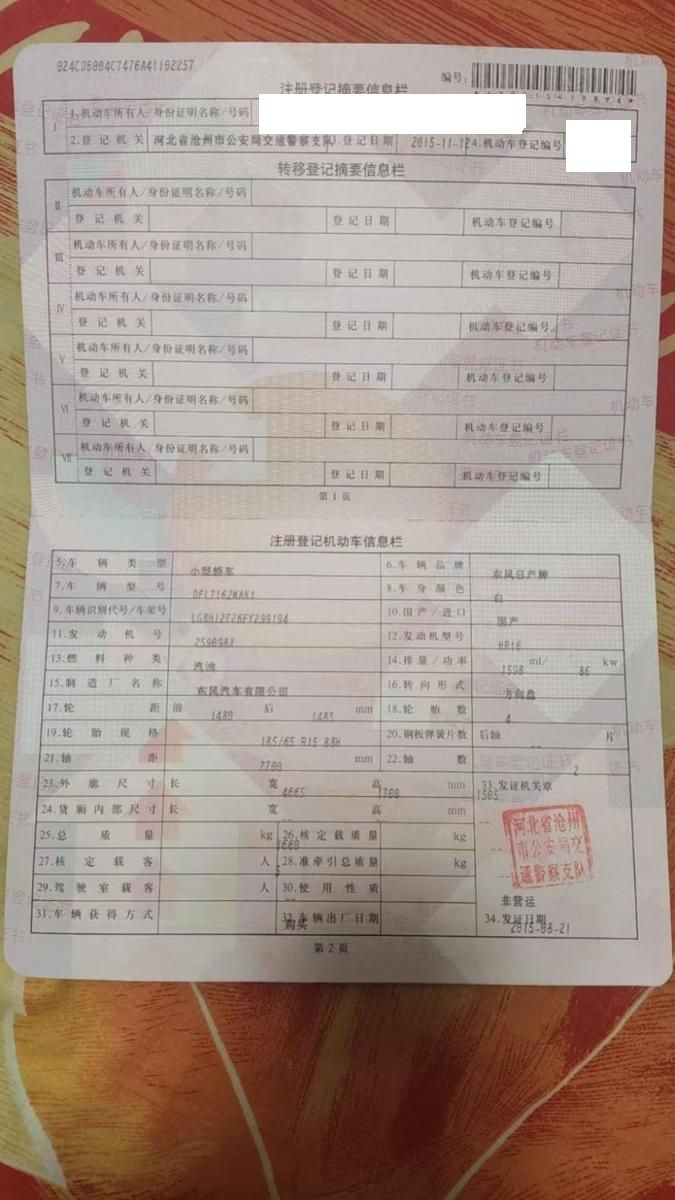 024CD5004C7476A41102257
编号:
注册登记摘要信息栏
I 1.机动车所有人/身份证明名称/号码
2.登记机关 河北省沧州市公安局交通警察支队 3.登记日期 2015-11-12 4.机动车登记编号
转移登记摘要信息栏
II 机动车所有人/身份证明名称/号码
登记机关 登记日期 机动车登记编号
III 机动车所有人/身份证明名称/号码
登记机关 登记日期 机动车登记编号
IV 机动车所有人/身份证明名称/号码
登记机关 登记日期 机动车登记编号
V 机动车所有人/身份证明名称/号码
登记机关 登记日期 机动车登记编号
VI 机动车所有人/身份证明名称/号码
登记机关 登记日期 机动车登记编号
VII 机动车所有人/身份证明名称/号码
登记机关 登记日期 机动车登记编号
第1页
注册登记机动车信息栏
5.车辆类型 小型轿车 6.车辆品牌 东风日产牌
7.车辆型号 DFL7162MAK1 8.车身颜色 白
9.车辆识别代号/车架号 10.国产/进口 国产
11.发动机号 259898X 12.发动机型号 HR16
13.燃料种类 汽油 14.排量/功率 1598 ml/ 86 kw
15.制造厂名称 东风汽车有限公司 16.转向形式 方向盘
17.轮距 前 1480 后 1485 mm 18.轮胎数 4
19.轮胎规格 185/65 R15 88H 20.钢板弹簧片数 后轴 -- 片
21.轴距 2700 mm 22.轴数 2
23.外廓尺寸 长 4665 宽 1700 高 1505 mm 33.发证机关章
24.货厢内部尺寸 长 -- 宽 -- 高 -- mm
25.总质量 1660 kg 26.核定载质量 -- kg
27.核定载客 5 人 28.准牵引总质量 -- kg
29.驾驶室载客 -- 人 30.使用性质 非营运
31.车辆获得方式 购买 32.车辆出厂日期 2015-08-21 34.发证日期
河北省沧州
市公安局交
通警察支队
第2页